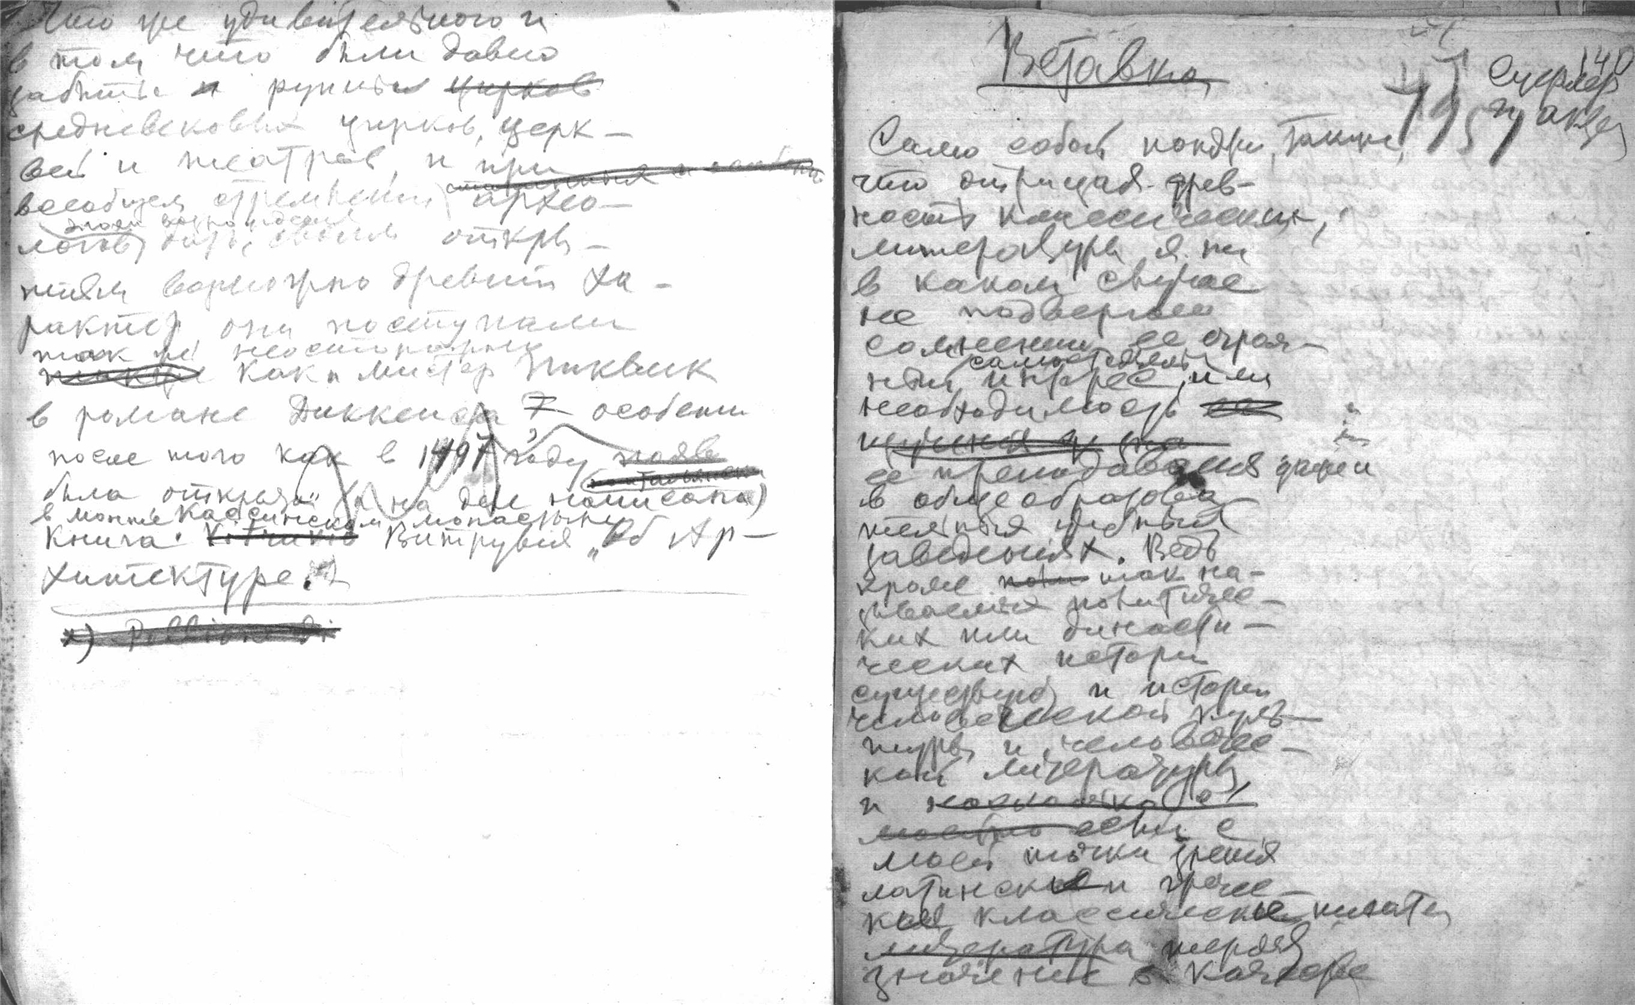 Что же удивительного и
в том что были давно
забыты и руины цирков
средневековых цирков, церк-
вей и театров, и при
всеобщем стремлении архео-
логов этой возрождения дать своим откры-
тиям вероятно древний ха-
рактер они поступали
так же неосторожно
как и мистер Пиквик
в романе Диккенса особенно
после того как в 1497 году
была открыта (а на деле написана)
в Монте Кассинском монастыре
книга Витрувия „Об Ар-
хитектуре.
Вставка
140
Само собой понятно, также,
что отрицая древ-
ность классической
литературы я ни
в каком случае
не подвергаю
сомнению ее огром-
самостоятельный
ный интерес, или
необходимость ее
ее преподавания
в общеобразова-
тельных учебных
заведениях. Ведь
кроме так на-
зываемых политичес-
ких или династи-
ческих истори
существует и история
человеческой куль-
туры и человечес-
кой литературы,
и
если с
моей точки зрения
латинские и гречес-
кие классические писатели
литература теряет
значение в качестве